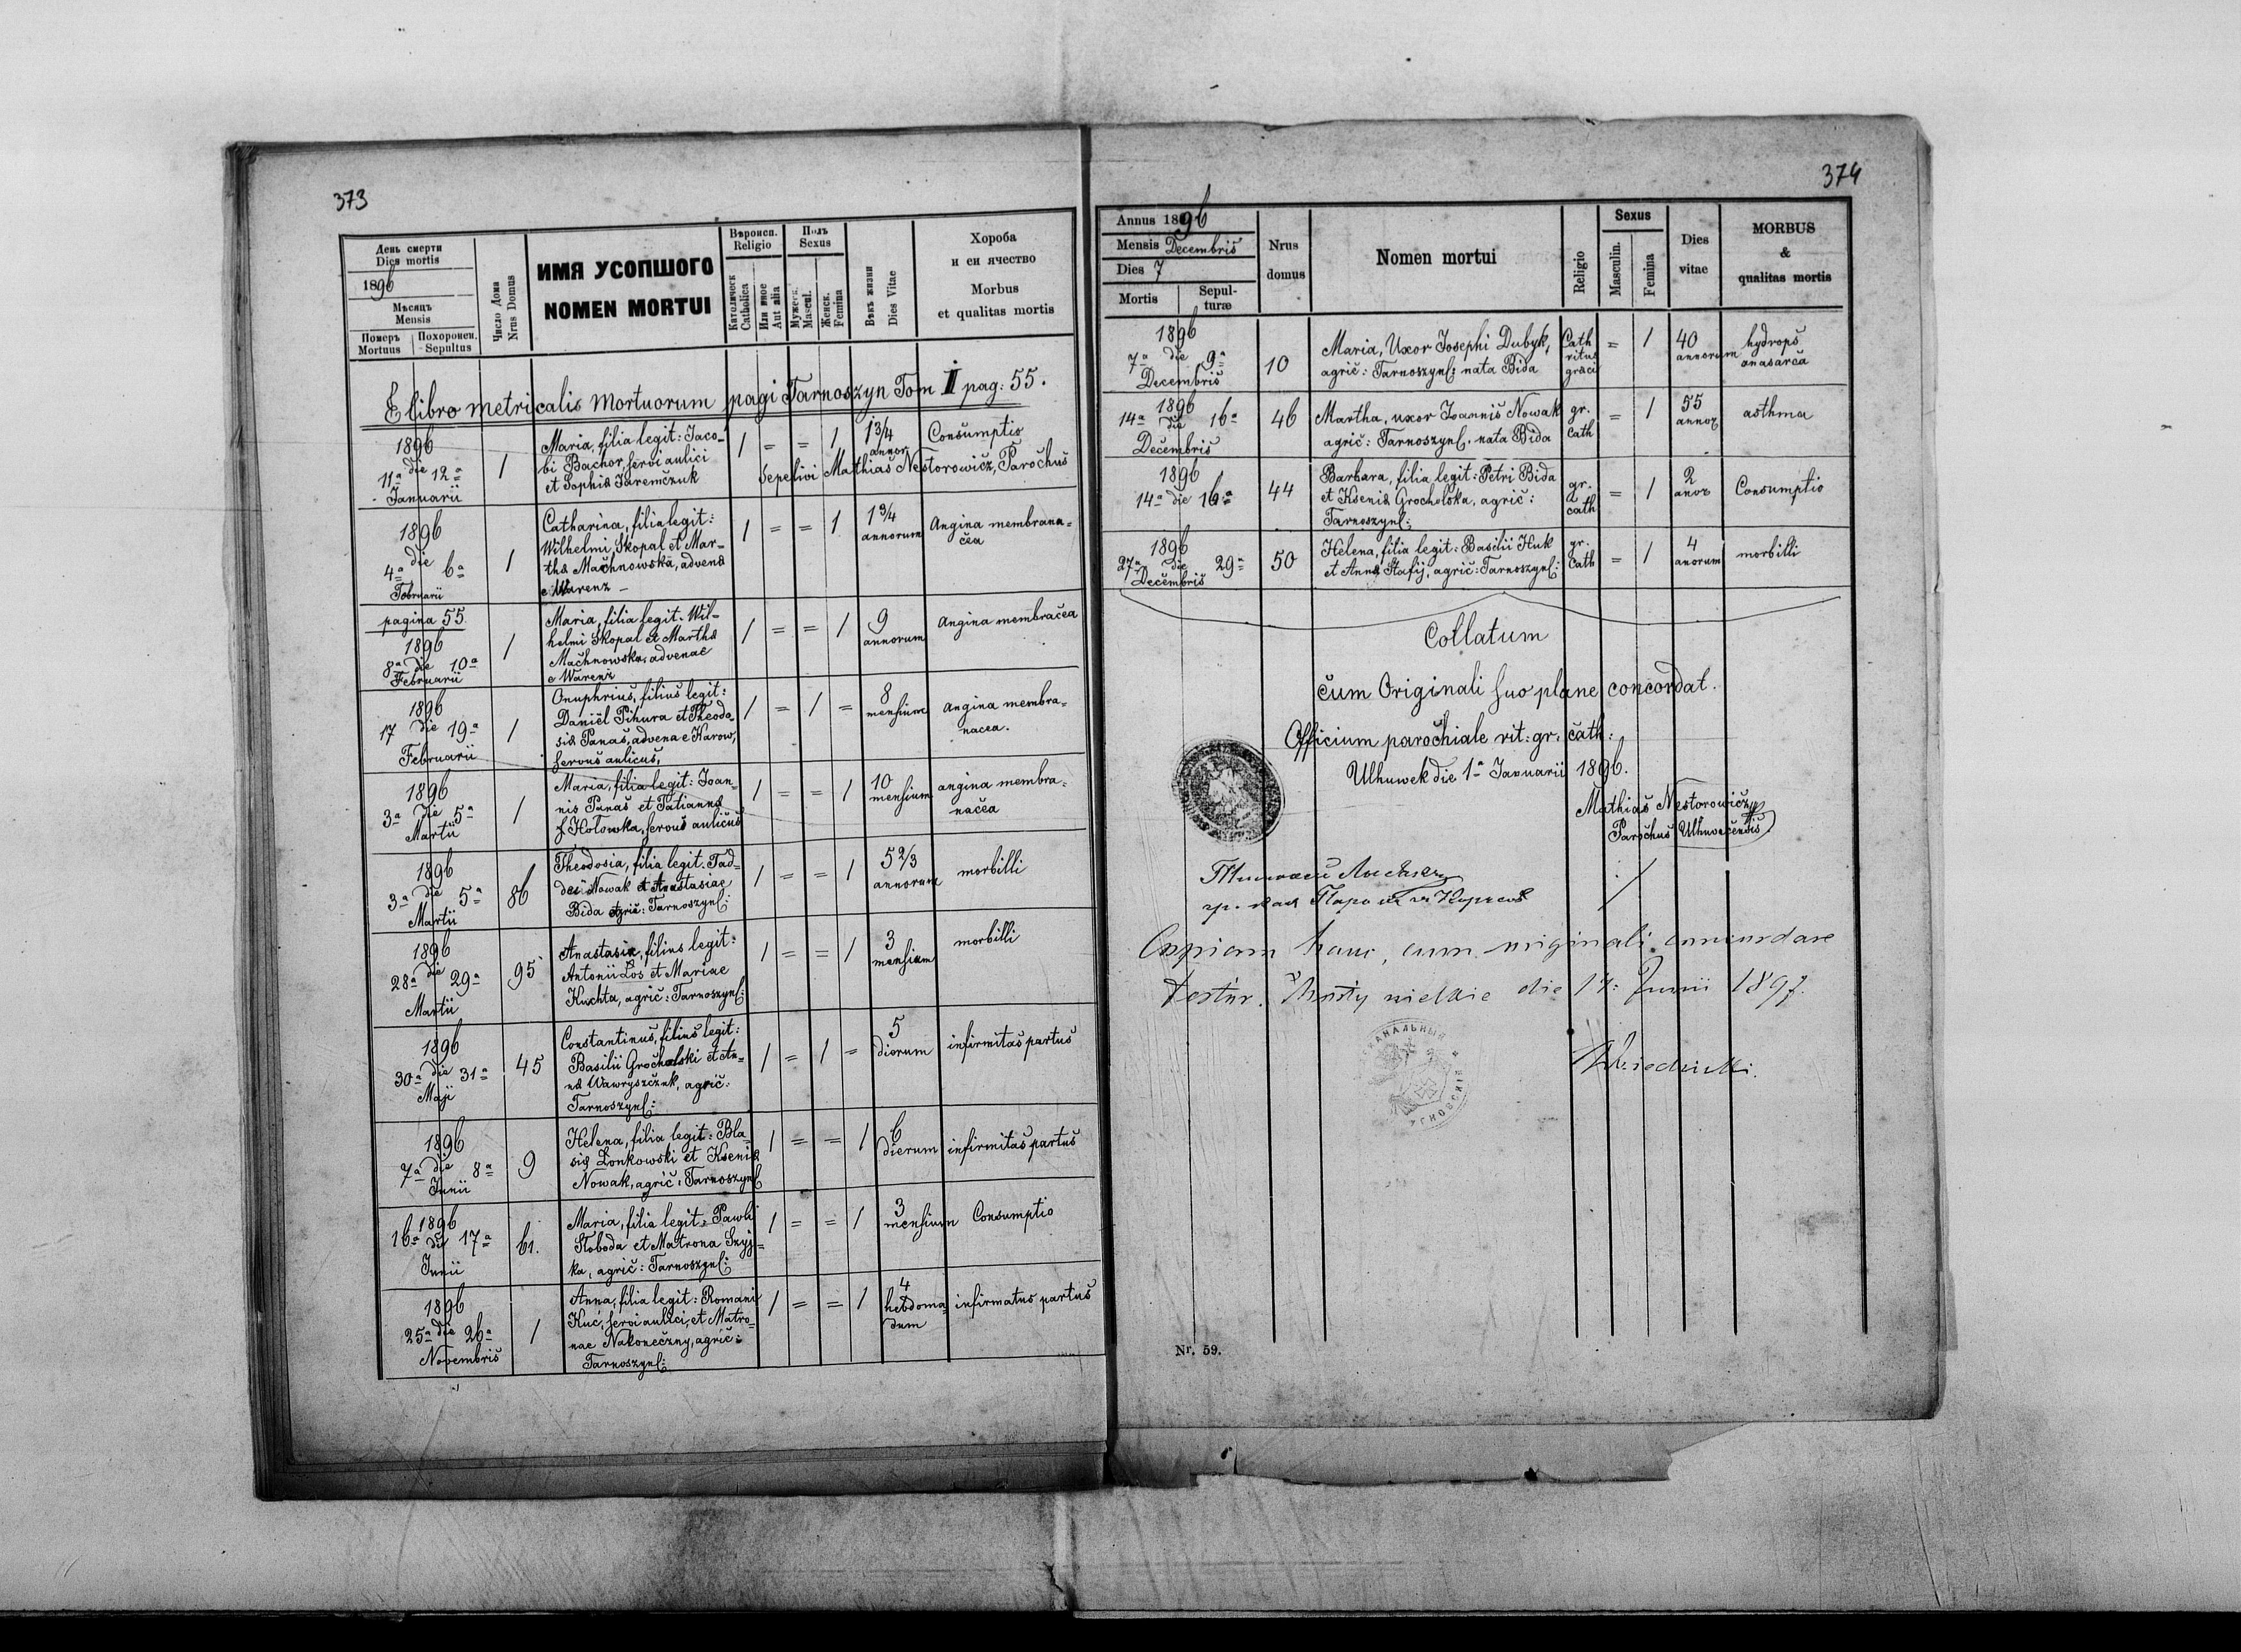 373
День смерти
Dies mortis
1896
Мѣсяцъ
Mensis
Померъ Похоронен.
Mortuus Sepultus
Число Дома
Nrus Domus
ИМЯ УСОПШОГО
NOMEN MORTUI
Вѣроисп.
Religio
Католическ
Catholica
Или иное
Aut alia
Полъ
Sexus
Мужеск.
Mascul.
Женск.
Femina
Вѣкъ жизни
Dies Vitae
Хороба
и еи ячество
Morbus
et qualitas mortis
E libro metricalis Mortuorum pagi Tarnoszyn Tom II pag: 55.
1896
11a die 12a
Januarii
1
Maria, filia legit: Jaco-
bi Bachor, servi aulici
et Sophia Jaremczuk
1 = = 1
1 3/4
annor
Consumptio
Sepelivi Mathias Nestorowicz, Parochus
1896
4a die 6a
Februarii
1
Catharina, filia legit:
Wilhelmi Skopal et Mar-
tha Machnowska, advena
e Warenz
1 = = 1
1 3/4
annorum
Angina membrana=
cea
pagina 55
1896
8a die 10a
Februarii
1
Maria, filia legit: Wil-
helmi Skopal et Martha
Machnowska, advenae
e Warenz
1 = = 1
9
annorum
Angina membracea
1896
17 die 19a
Februarii
1
Onuphrius, filius legit:
Daniel Pihura et Theodo-
sia Panas, advena e Karow,
servus aulicus,
1 = 1 =
8
mensium
angina membra=
nacea.
1896
3a die 5a
Martii
1
Maria, filia legit: Joan-
nis Panas et Tatianna
f. Hołowka, servus aulicus
1 = = 1
10
mensium
angina membra=
nacea
1896
3a die 5a
Martii
86
Theodosia, filia legit. Tad-
dei Nowak et Anastasiae
Bida agric: Tarnoszyns:
1 = = 1
5 2/3
annorum
morbilli
1896
28a die 29a
Martii
95
Anastasia, filius legit:
Antonii Łos et Mariae
Kuchta, agric: Tarnoszyns:
1 = = 1
3
mensium
morbilli
1896
30a die 31a
Maji
45
Constantinus, filius legit:
Basilii Grocholski et An-
na Wawryszczuk, agric:
Tarnoszyns:
1 = 1 =
5
dierum
infirmitas partus
1896
7a die 8a
Junii
9
Helena, filia legit: Bla-
sia Łonkowski et Ksenia
Nowak, agric: Tarnoszyns
1 = = 1
6
dierum
infirmitas partus
1896
16a die 17a
Junii
61.
Maria, filia legit: Pawli
Słoboda et Matrona Szyj=
ka, agric: Tarnoszyns:
1 = = 1
3
mensium
Consumptio
1896
25a die 26a
Novembris
1
Anna, filia legit: Romani
Kuć, servi aulici, et Matro-
nae Nakoneczny, agric:
Tarnoszyns:
1 = = 1
4
hebdoma-
dum
infirmatus partus
374
Annus 1896
Mensis Decembris
Dies 7
Mortis Sepul-
turæ
Nrus
domus
Nomen mortui
Religio
Sexus
Masculin.
Femina
Dies
vitae
MORBUS
&
qualitas mortis
1896
7a die 9a
Decembris
10
Maria, Uxor Josephi Dubyk,
agric: Tarnoszyns: nata Bida
Cath
ritus
græci
= 1
40
annorum
hydrops
anasarca
1896
14a die 16a
Decembris
46
Martha, uxor Joannis Nowak
agric: Tarnoszyns. nata Bida
gr.
cath
= 1
55
annor
asthma
1896
14a die 16a
44
Barbara, filia legit: Petri Bida
et Ksenia Grocholska, agric:
Tarnoszyns:
gr.
cath
= 1
2
anor
Consumptio
1896
27a die 29a
Decembris
50
Helena, filia legit: Basilii Huk
et Anna Stafij, agric: Tarnoszyns:
gr.
Cath
= 1
4
anorum
morbilli
Collatum
cum Originali suo plane concordat.
Officium parochiale rit: gr. cath:
Ulhuwek die 1a Januarii 1896.
Mathias Nestorowicz
Parochus Ulhuvecensis
Copiam hanc, cum originali concordare
testor. die 17: Junii 1897.
Nr. 59.